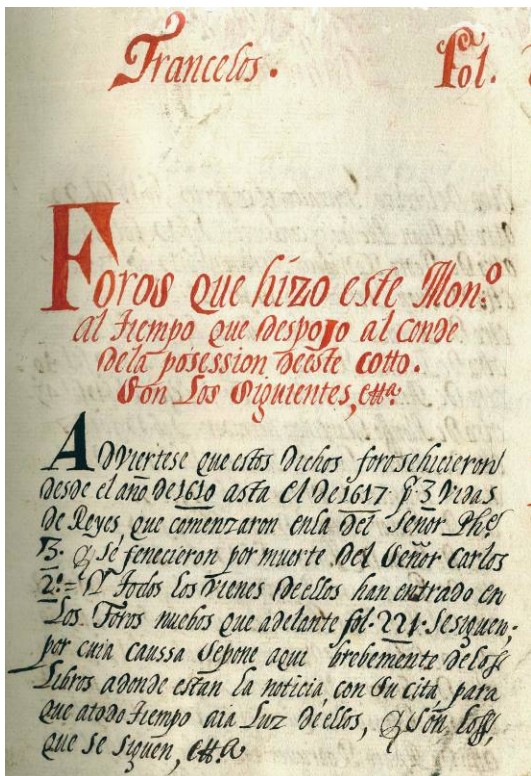 Francelos. fol.
Foros que hizo este Mon.º
al tiempo que despojo al conde
dela posession deeste cotto.
Son Los Siguientes, ettª.
Adviertese que estos dichos foros se hicieron
desde el año de 1610 asta el de 1617 p.r 3 vidas
de Reyes, que comenzaron enla del Señor Phe.
3. y se fenecieron por muerte del Señor Carlos
2.º = Y todos los vienes de ellos han entrado en
Los Foros nuebos que adelante fol. 221. se siguen,
por cuia caussa se pone aqui brebemente de los
Libros adonde estan la noticia, con su cita para
que atodo tiempo aia Luz de ellos, y son los
que se siguen, ettª.